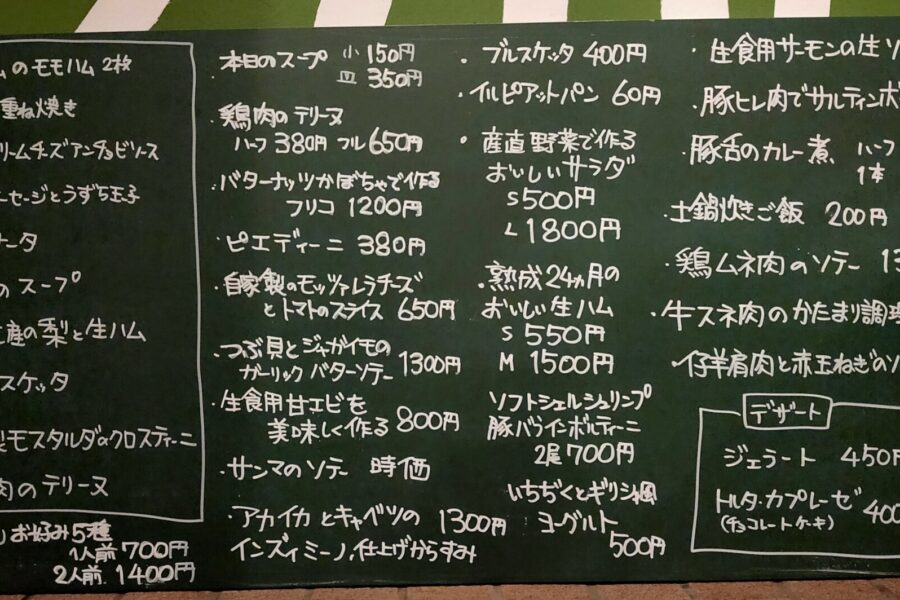 ムのモモハム 2枚
重ね焼き
リームチーズアンチョビソース
ーセージとうずら玉子
ータ
のスープ
産の梨と生ハム
スケッタ
製モスタルダのクロスティーニ
肉のテリーヌ
お好み5種
1人前 700円
2人前 1400円
・本日のスープ 小 150円
皿 350円
・鶏肉のテリーヌ
ハーフ 380円 フル 650円
・バターナッツかぼちゃで作る
フリコ 1200円
・ピエディーニ 380円
・自家製のモッツァレラチーズ
とトマトのスライス 650円
・つぶ貝とジャガイモの
ガーリックバターソテー 1300円
・生食用甘エビを
美味しく作る 800円
・サンマのソテー 時価
・アカイカとキャベツの 1300円
インズィミーノ,仕上げからすみ
・ブルスケッタ 400円
・イルピアットパン 60円
・産直野菜で作る
おいしいサラダ
S 500円
L 1800円
・熟成24ヵ月の
おいしい生ハム
S 550円
M 1500円
ソフトシェルシュリンプ
豚バラインボルティーニ
2尾 700円
いちぢくとギリシャ風
ヨーグルト
500円
・生食用サーモンの生ソ
・豚ヒレ肉でサルティンボ
・豚舌のカレー煮 ハーフ
1本
・土鍋炊きご飯 200円
・鶏ムネ肉のソテー 13
・牛スネ肉のかたまり調理
・仔羊肩肉と赤玉ねぎのソ
デザート
ジェラート 450円
トルタ・カプレーゼ 400
(チョコレートケーキ)